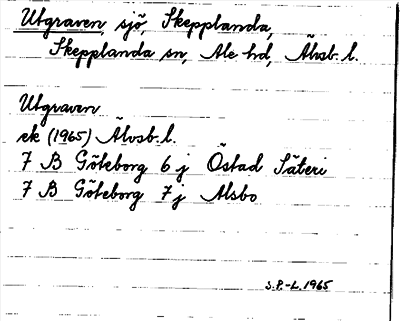 Utgraven, sjö, Skepplanda,
Skepplanda sn, Ale hd, Älvsb. l.
Utgraven
ek (1965) Älvsb. l.
7 B Göteborg 6 j Östad Säteri
7 B Göteborg 7 j Alsbo
S.P.-L. 1965